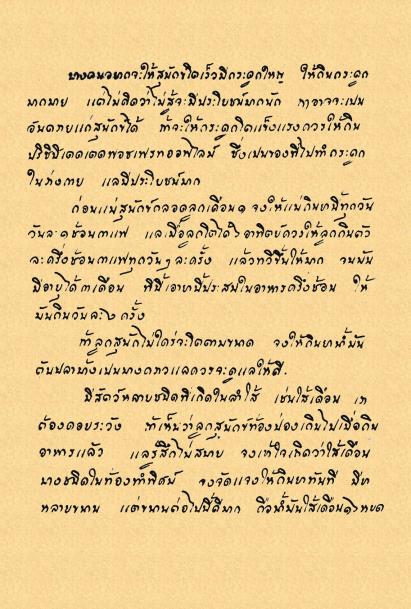 บางคนอยากจะให้สุนัขโตเร็วมีกระดูกใหญ่ ให้กินกระดูก
มากมาย แต่ไม่คิดว่าไม่สู้จะมีประโยชน์มากนัก กาอาจจะเปน
อันตรายแก่สุนัขได้ ถ้าจะให้กระดูกโตแข็งแรงควรให้กิน
ปริซิปิเตตเตดพอซเฟรทออฟไลม์ ซึ่งเปนของที่ไปทำกระดูก
ในร่างกาย แลมีประโยชน์มาก
ก่อนแม่สุนัขคลอดลูกเดือน ๑ จงให้แม่กินยานี้ทุกวัน
วันละ ๑ ช้อนกาแฟ และเมื่อลูกโตได้ ๖ อาทิตย์ควรให้ลูกกินตัว
ละครึ่งช้อนกาแฟทุกวัน ๆ ละครั้ง แล้วทวีขึ้นให้มาก จนมัน
มีอายุได้ ๓ เดือน ทีนี้เอายานี้ประสมในอาหารครึ่งช้อน ให้
มันกินวันละ ๖ ครั้ง
ถ้าลูกสุนัขไม่ใคร่จะโตตามขนาด จงให้กินยาน้ำมัน
ตับปลาบ้างเปนบางคราวแลควรจะดูแลให้ดี.
มีสัตว์หลายชนิดที่เกิดในลำไส้ เช่นไส้เดือน เรา
ต้องคอยระวัง ถ้าเห็นว่าลูกสุนัขท้องป่องเกินไปเมื่อกิน
อาหารแล้ว แลรู้สึกไม่สบาย จงเข้าใจเถิดว่าไส้เดือน
บางชนิดในท้องทำพิศม์ จงจัดแจงให้กินยาทันที มียา
หลายขนาน แต่ขนานต่อไปนี้ดีมาก คือน้ำมันไส้เดือน ๖ หยด